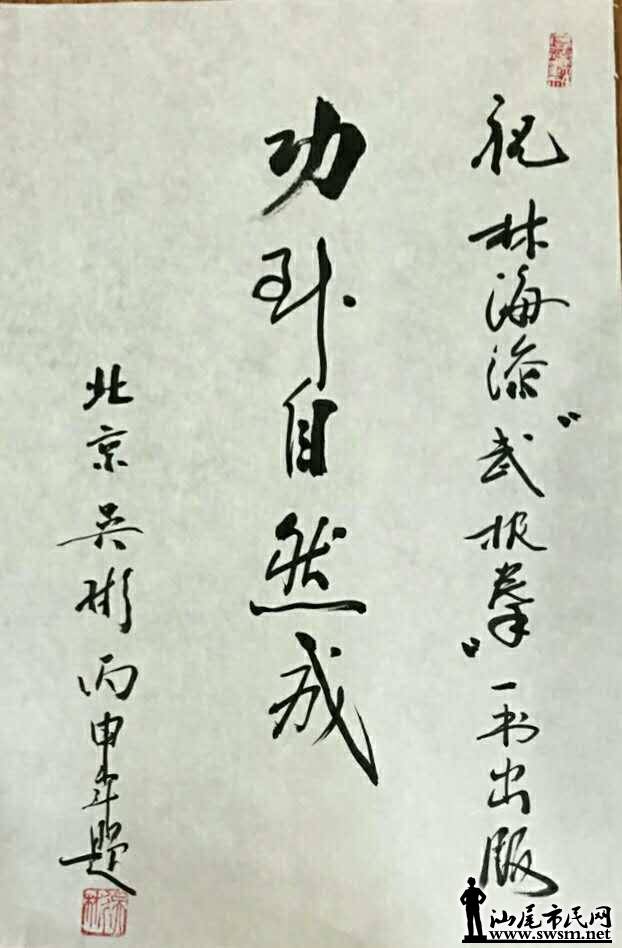 祝林海添“武极拳”一书出版
功到自然成
北京吴彬丙申年题
汕尾市民网
www.swsm.net